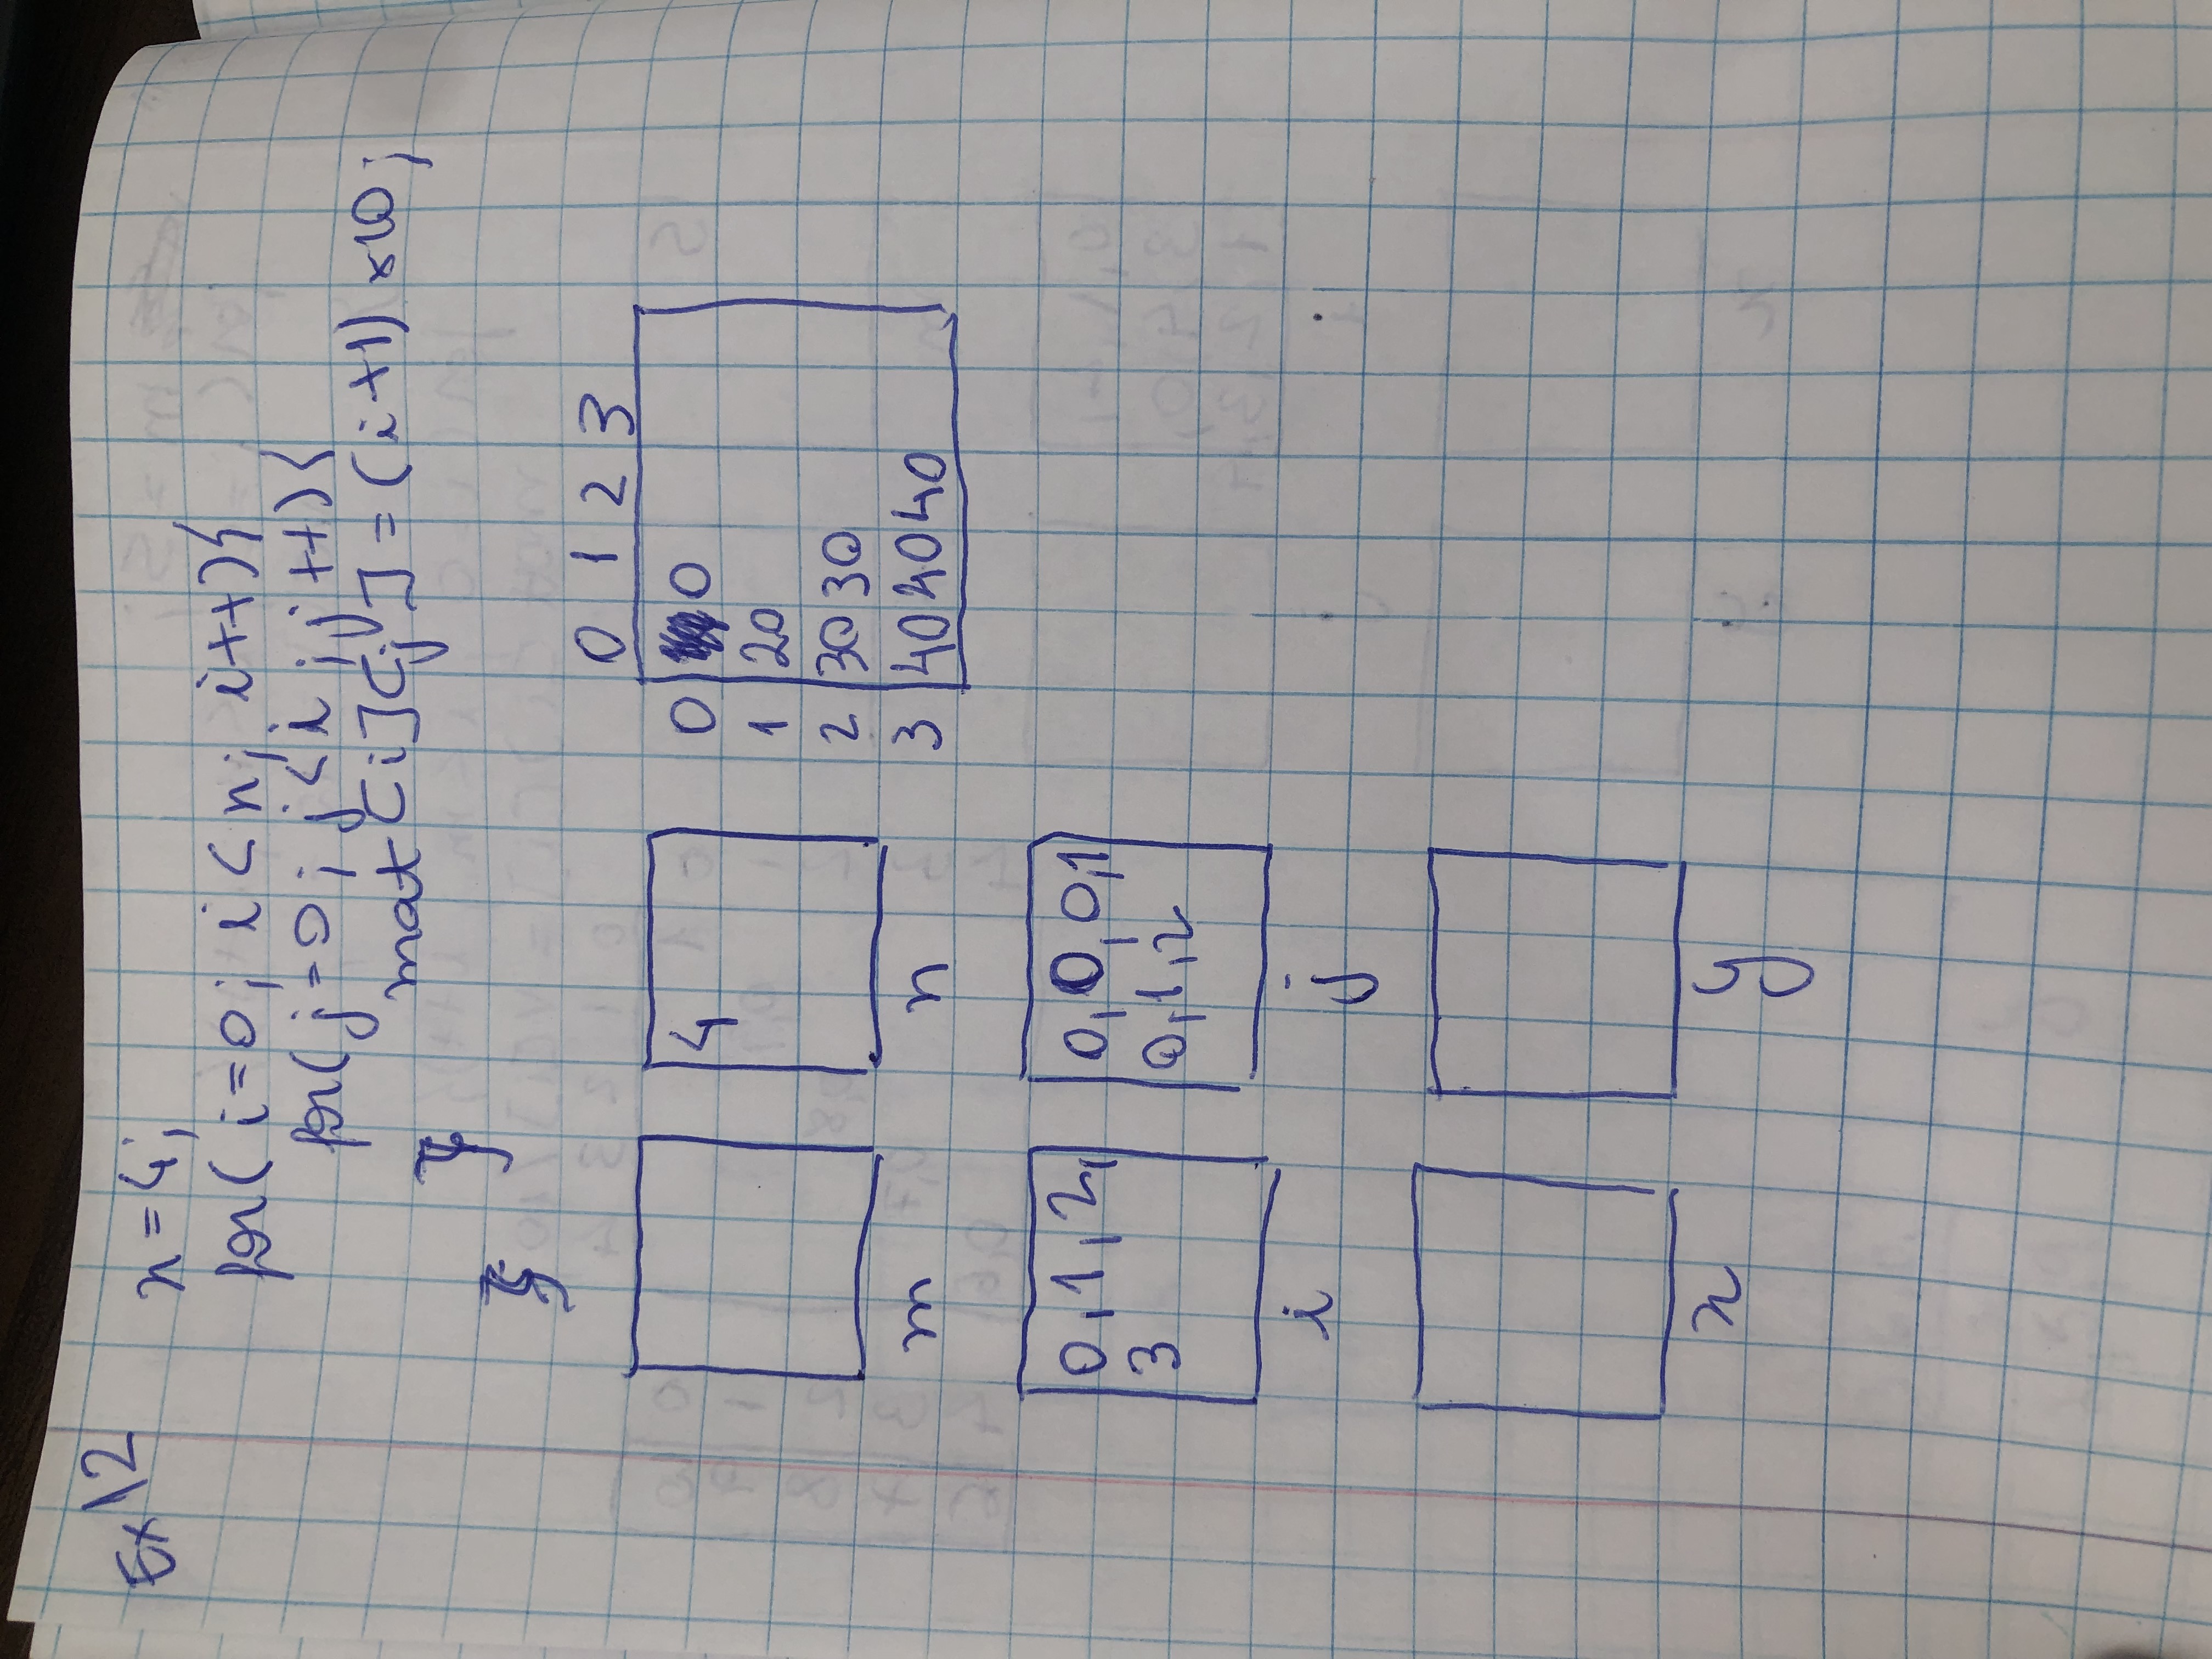 Ex 12
n = 4;
for( i=0; i < n; i++){
for( j=0; j<i; j++){
mat[i][j] = (i+1) *10;
}
}
0 1 2 3
0 0
1 20
2 30 30
3 40 40 40
4
m n
0,1,2, 0,0,0,1
3 0,1,2
i j
x y